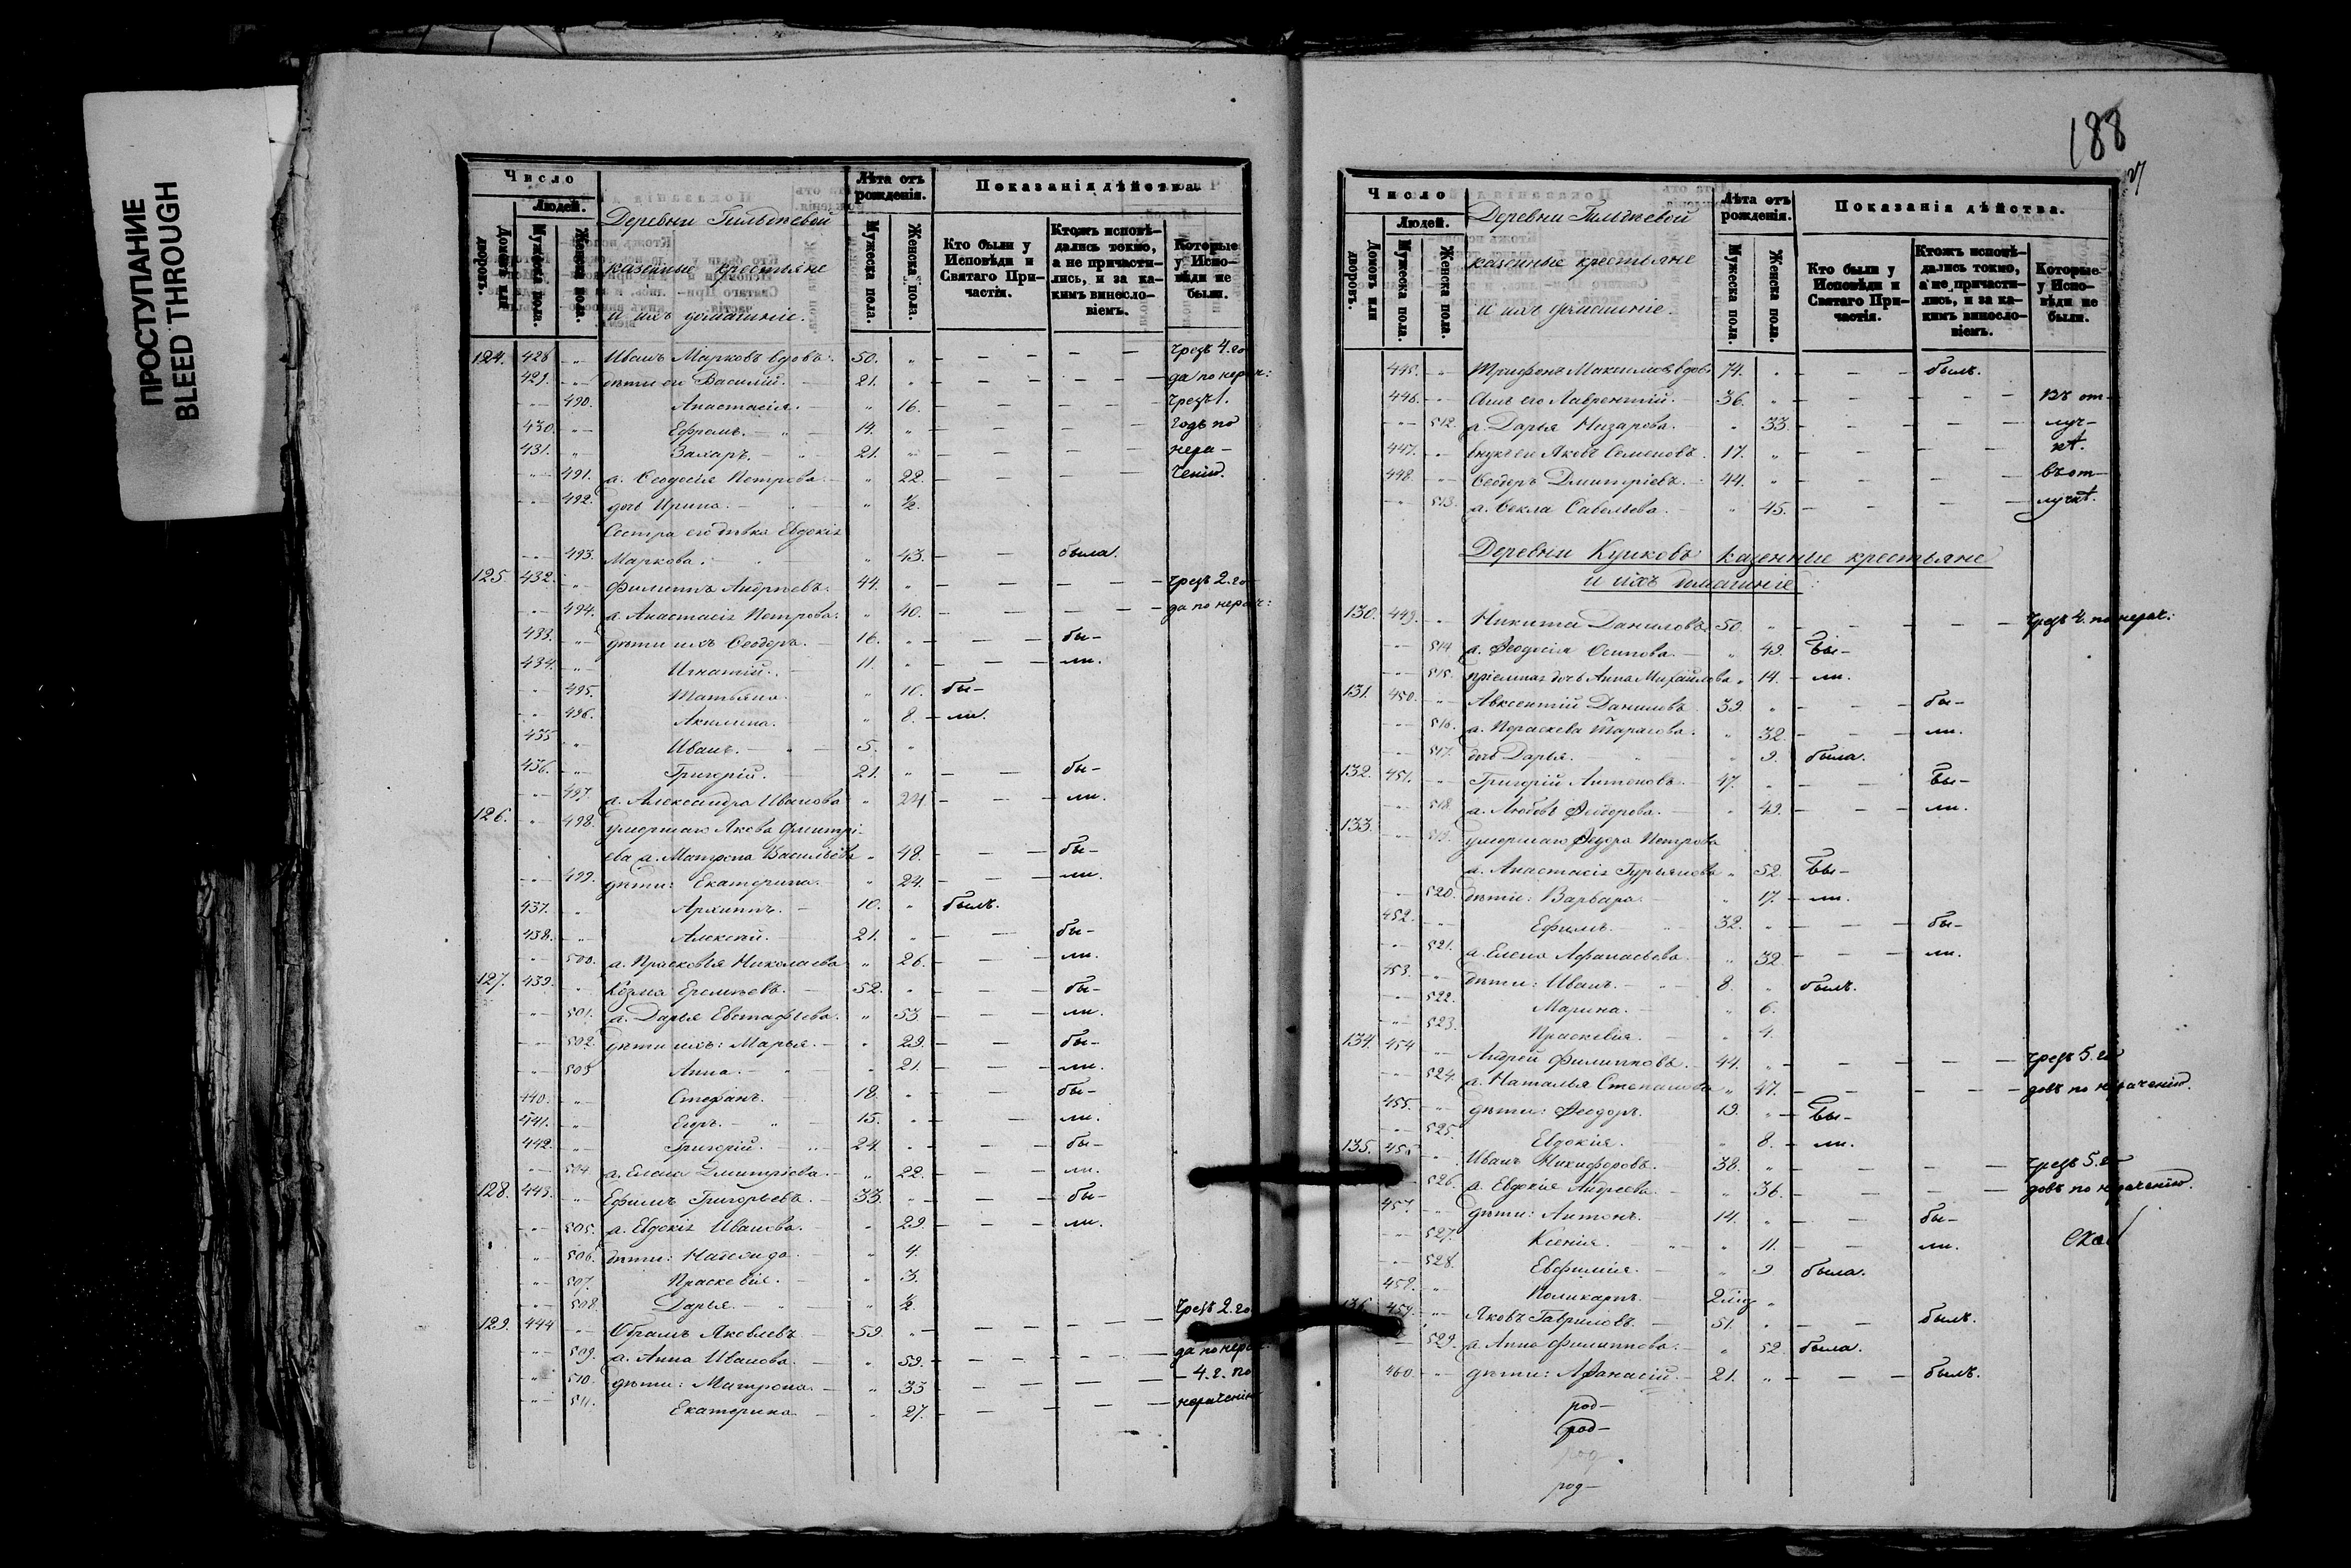 ПРОСТУПАНИЕ
BLEED THROUGH
Число
Людей.
Домовъ или дворовъ.
Мужеска пола.
Женска пола.
Деревни Гильдѣевой
казенные крестьяне
и ихъ домашніе.
Лѣта отъ рожденія.
Мужеска пола.
Женска пола.
Показанія дѣйства.
Кто были у Исповѣди и Святаго Причастія.
Ктожъ исповѣдались токмо, а не причастились, и за какимъ винословіемъ.
Которые у Исповѣди не были.
124. 428 Иванъ Марковъ вдовъ. 50. чрезъ 4. го
429. дѣти его Василій. 21. да по нерач:
490. Анастасія. 16. чрезъ 1.
430. Ефремъ. 14. годъ по
431. Захаръ. 21. нера-
491. а. Ѳеодосія Петрова. 22. ченію.
492. дочь Ирина. ½.
Сестра его дѣвка Евдокія
493. Маркова. 43. была.
125. 432. Филиппъ Андреевъ. 44. чрезъ 2. го
494. а. Анастасія Петрова. 40. да по нерач:
433. дѣти ихъ Ѳеодоръ. 16. бы-
434. Игнатій. 11. ли.
495. Татьяна. 10. бы-
496. Акилина. 8. ли.
435 Иванъ. 5.
436. Григорій. 21. бы-
497. а. Александра Иванова 24. ли.
126. 498. умершаго Якова Дмитрі-
ева а. Матрена Васильева 48. бы-
499. дѣти: Екатерина. 24. ли.
437. Архиппъ. 10. былъ.
438. Алексѣй. 21. бы-
500. а. Прасковья Николаева 26. ли.
127. 439. Козма Еремѣевъ. 52. бы-
501. а. Дарья Евстафьева. 53. ли.
502. дѣти ихъ: Марья. 29. бы-
503 Анна. 21. ли.
440. Стефанъ. 18. бы-
441. Егоръ. 15. ли.
442. Григорій. 24. бы-
504. а. Елена Дмитріева. 22. ли.
128. 443. Ефимъ Григорьевъ. 33. бы-
505. а. Евдокія Иванова. 29. ли.
506. дѣти: Надежда. 4.
507. Праскевія. 3.
508. Дарья. ½. чрезъ 2. го
129. 444 Абрамъ Яковлевъ 59.
509. а. Анна Иванова. 59. да по нерач
510. дѣти: Матрона. 33 4. г. по
511. Екатерина 27. нераченію
188
Число
Людей.
Домовъ или дворовъ.
Мужеска пола.
Женска пола.
Деревни Гильдѣевой
казенные крестьяне
и ихъ домашніе.
Лѣта отъ рожденія.
Мужеска пола.
Женска пола.
Показанія дѣйства.
Кто были у Исповѣди и Святаго Причастія.
Ктожъ исповѣдались токмо, а не причастились, и за какимъ винословіемъ.
Которые у Исповѣди не были.
445. Трифонъ Максимовъ вдовъ 74. былъ.
446. сынъ его Лаврентій. 36. въ от-
512. а. Дарья Назарова. 33. луч-
447. внукъ его Яковъ Семеновъ. 17. кѣ.
448. Ѳеодоръ Дмитріевъ. 44. въ от-
513. а. Ѳекла Савельева. 45. лучкѣ.
Деревни Кулковъ казенные крестьяне
и ихъ домашніе:
130. 449. Никита Даниловъ 50. чрезъ 4. по нерач:
514 а. Феодосія Осипова. 49. Бы-
515. пріемная дочь Анна Михайлова. 14. ли.
131. 450. Авксентій Даниловъ. 39. бы-
516. а. Параскева Тарасова. 32. ли.
517. дочь Дарья. 9. была.
132. 451. Григорій Антоновъ. 47. Бы-
518. а. Любовь Феодорова. 49. ли.
133. 519. умершаго Федора Петрова
а. Анастасія Гурьянова 52. Бы-
520. дѣти: Варвара. 17. ли.
452. Ефимъ. 32. бы-
521. а. Елена Афанасьева. 32. ли.
453. дѣти: Иванъ. 8. былъ.
522. Марина. 6.
523. Праскевія. 4.
134. 454 Андрей Филипповъ. 44. чрезъ 5. го
524. а. Наталья Степанова 47. довъ по нераченію.
455. дѣти: Феодоръ. 19. Бы-
525. Евдокія. 8. ли.
135. 456 Иванъ Никифоровъ. 38. чрезъ 5. го
526. а. Евдокія Андреева. 36. довъ по нераченію.
457. дѣти: Антонъ. 14. бы-
527. Ксенія. 11. ли.
528. Евфимія. 9 была.
458. Поликарпъ. 2
136. 459. Яковъ Гавриловъ. 51. былъ.
529. а. Анна Филиппова. 52. была.
460. дѣти: Афанасій. 21. былъ.
род-
род-
род
род-